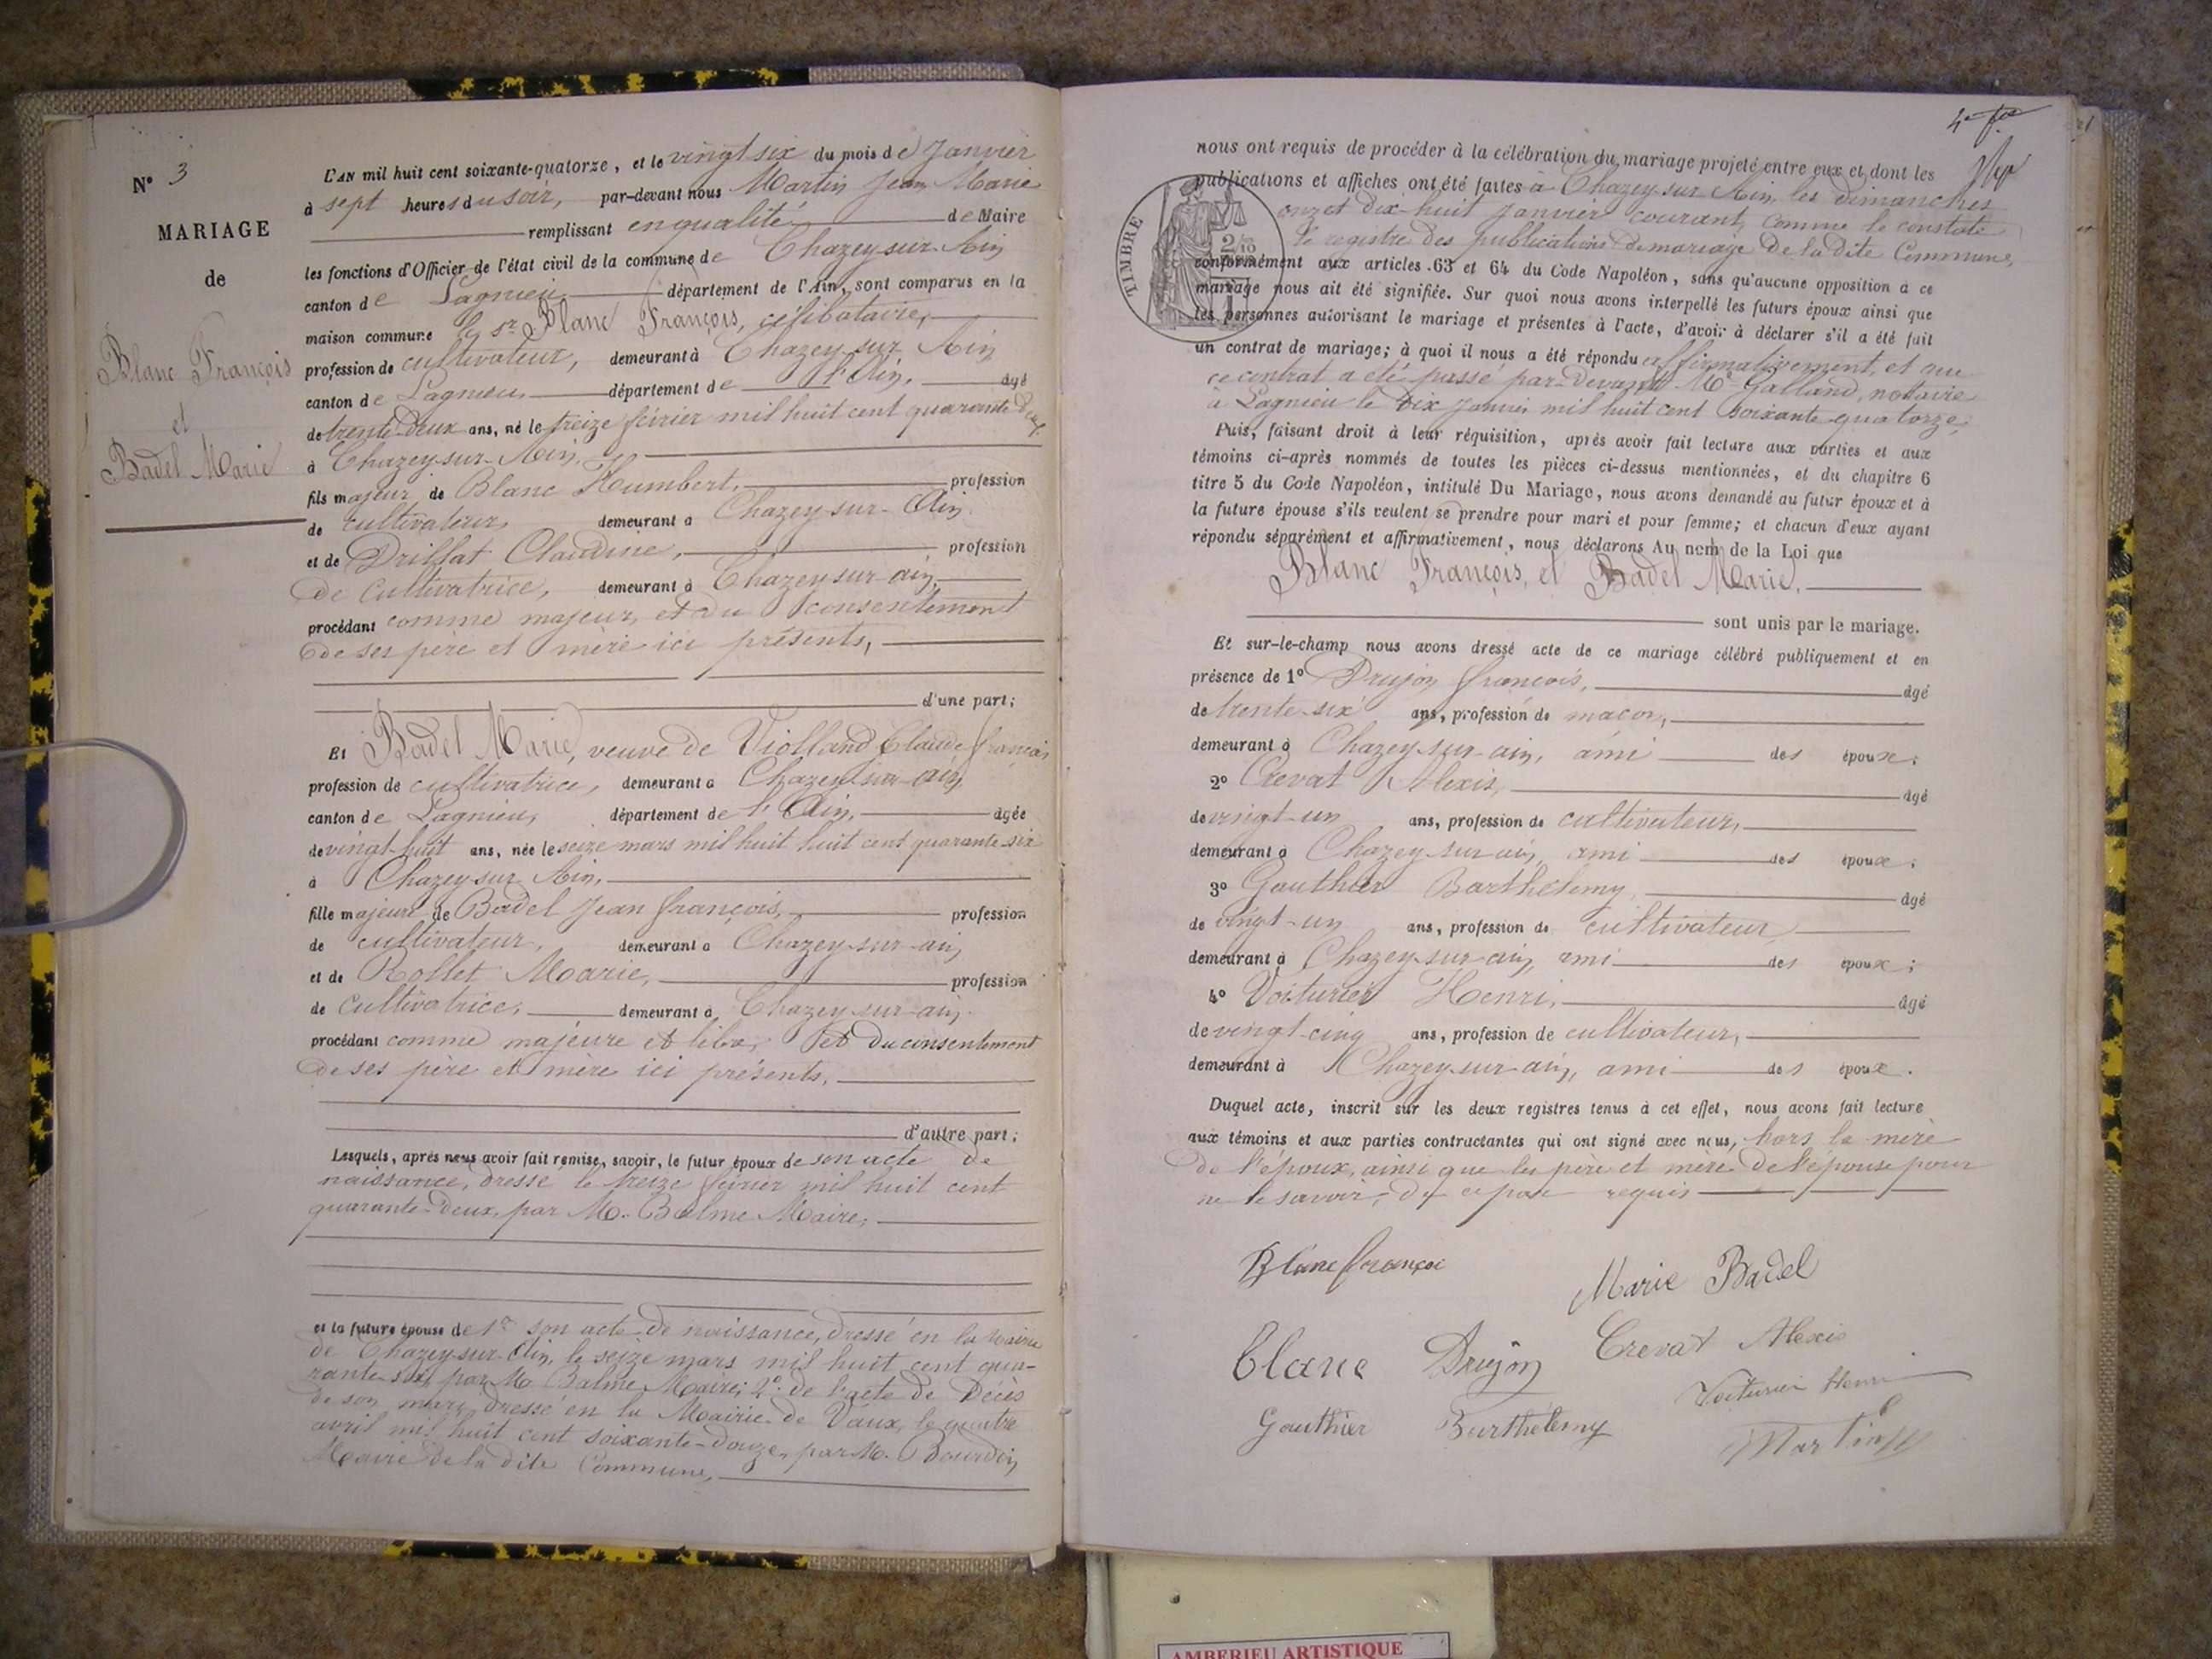 N° 3
MARIAGE
de
Blanc François
et
Badel Marie
L'AN mil huit cent soixante-quatorze, et le vingt six du mois de Janvier
à sept heures du soir, par-devant nous Martin Jean Marie
remplissant en qualité de Maire
les fonctions d'Officier de l'état civil de la commune de Chazey-sur-Ain
canton de Lagnieu département de l'Ain, sont comparus en la
maison commune le sr Blanc François, célibataire,
profession de cultivateur, demeurant à Chazey-sur-Ain
canton de Lagnieu département de l'Ain. âgé
de trente-deux ans, né le treize février mil huit cent quarante deux
à Chazey-sur-Ain,
fils majeur de Blanc Humbert, profession
de cultivateur, demeurant à Chazey-sur-Ain
et de Drillat Claudine, profession
de cultivatrice, demeurant à Chazey-sur-ain,
procédant comme majeur, et du consentement
de ses père et mère ici présents,
d'une part;
Et Badel Marie, veuve de Violland Claude françois
profession de cultivatrice, demeurant à Chazey-sur-ain,
canton de Lagnieu, département de l'Ain, âgée
de vingt-huit ans, née le seize mars mil huit huit cent quarante-six
à Chazey-sur Ain,
fille majeure de Badel Jean françois, profession
de cultivateur, demeurant à Chazey-sur-ain,
et de Rollet Marie, profession
de cultivatrice, demeurant à Chazey-sur-ain,
procédant comme majeure et libre, et du consentement
de ses père et mère ici présents,
d'autre part;
Lesquels, après nous avoir fait remise, savoir, le futur époux de son acte de
naissance, dressé le treize février mil huit cent
quarante-deux, par M. Balme Maire,
et la future épouse de 1° son acte de naissance, dressé en la Mairie
de Chazey-sur-Ain, le seize mars mil huit cent qua-
rante-six, par M. Balme Maire; 2° de l'acte de décès
de son mari, dressé en la Mairie de Vaux, le quatre
avril mil huit cent soixante-douze, par M. Bourdin,
Maire de la dite Commune,
nous ont requis de procéder à la célébration du mariage projeté entre eux et dont les
publications et affiches ont été faites à Chazey sur Ain, les dimanches
onze et dix-huit Janvier courant, comme le constate
TIMBRE
le registre des publications de mariage de la dite Commune,
conformément aux articles 63 et 64 du Code Napoléon, sans qu'aucune opposition à ce
mariage nous ait été signifiée. Sur quoi nous avons interpellé les futurs époux ainsi que
les personnes autorisant le mariage et présentes à l'acte, d'avoir à déclarer s'il a été fait
un contrat de mariage; à quoi il nous a été répondu affirmativement, et que
ce contrat a été passé par-devant Me Galland, notaire
à Lagnieu le dix Janvier mil huit cent soixante-quatorze,
Puis, faisant droit à leur réquisition, après avoir fait lecture aux parties et aux
témoins ci-après nommés de toutes les pièces ci-dessus mentionnées, et du chapitre 6
titre 5 du Code Napoléon, intitulé Du Mariage, nous avons demandé au futur époux et à
la future épouse s'ils veulent se prendre pour mari et pour femme; et chacun d'eux ayant
répondu séparément et affirmativement, nous déclarons Au nom de la Loi que
Blanc François, et Badel Marie,
sont unis par le mariage.
Et sur-le-champ nous avons dressé acte de ce mariage célébré publiquement et en
présence de 1° Drujon françois, âgé
de trente-six ans, profession de maçon,
demeurant à Chazey-sur-ain, ami des époux;
2° Crevat Alexis, âgé
de vingt-un ans, profession de cultivateur,
demeurant à Chazey-sur-ain, ami des époux;
3° Gauthier Barthélemy, âgé
de vingt-un ans, profession de cultivateur
demeurant à Chazey-sur-ain, ami des époux;
4° Voiturier Henri, âgé
de vingt-cinq ans, profession de cultivateur,
demeurant à Chazey-sur-ain, ami des époux.
Duquel acte, inscrit sur les deux registres tenus à cet effet, nous avons fait lecture
aux témoins et aux parties contractantes qui ont signé avec nous, hors la mère
de l'époux, ainsi que les père et mère de l'épouse pour
ne le savoir, de ce par requis
Blanc françois
Marie Badel
blanc Drujon Crevat Alexis
Voiturier Henri
Gauthier Barthélemy
Martin
AMBERIEU ARTISTIQUE